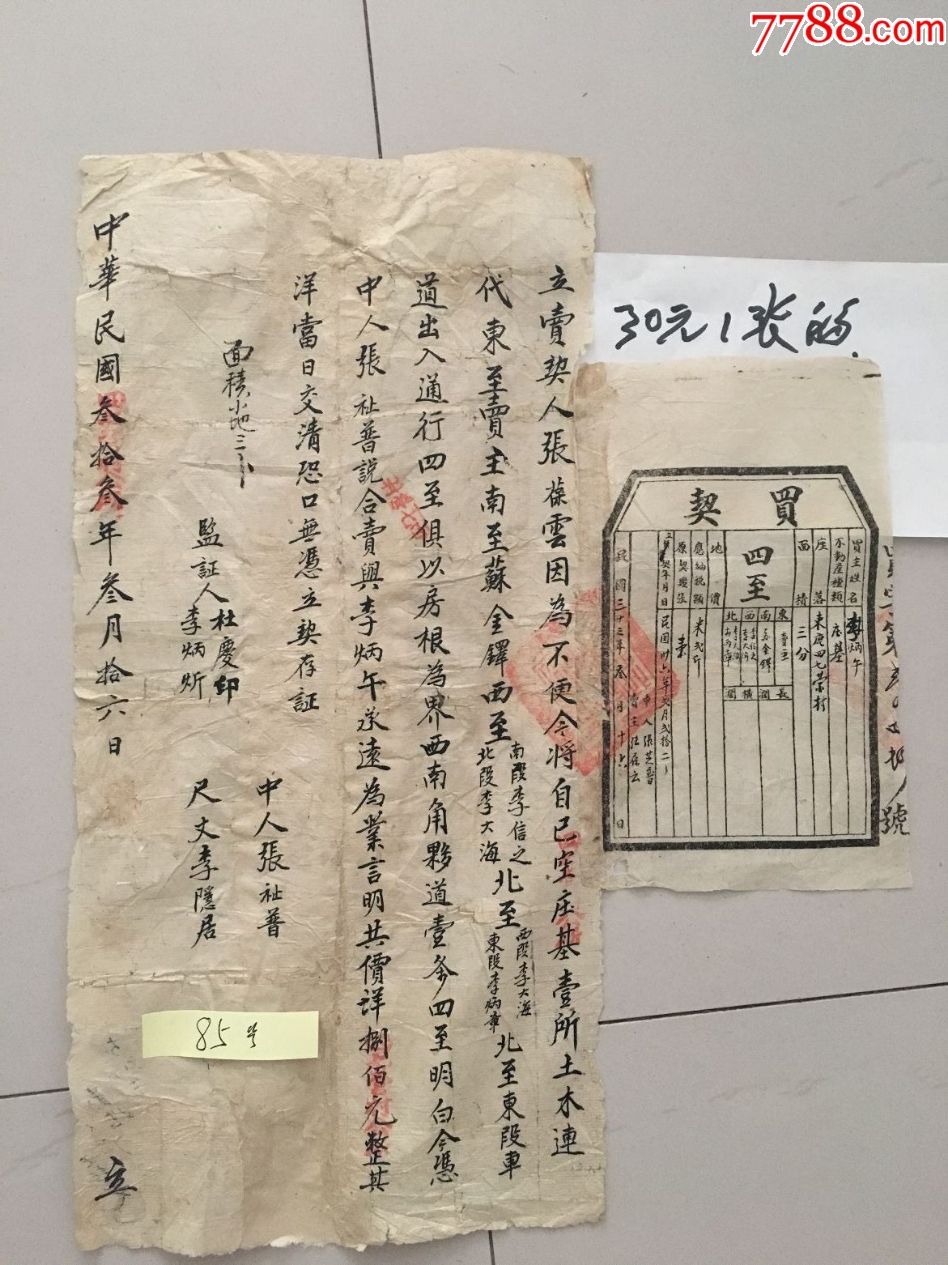 7788.com
30元1张的
立賣契人張葆雲因為不便今將自己空庄基壹所土木連
代東至賣主南至蘇金鐸西至南段李信之北段李大海北至西段李大海東段李炳章北至東段車
道出入通行四至俱以房根為界西南角夥道壹条四至明白今憑
中人張祉普説合賣與李炳午永遠為業言明共價洋捌佰元整其
洋當日交清恐口無憑立契存証
面積小地三分
中人張祉普
監証人杜慶印李炳炘
尺丈李隱居
中華民國叁拾叁年叁月拾六日
立
85号
買契
買主姓名
李炳午
不動產種類
庄基
座落
面積
三分
四至
東
賣主
南
金鐸
西
北
長
闊
橫
闊
地價
應納稅額
原契幾張
立契年月日
中人張芝普
賣主
民國三十三年叁月十六日
號